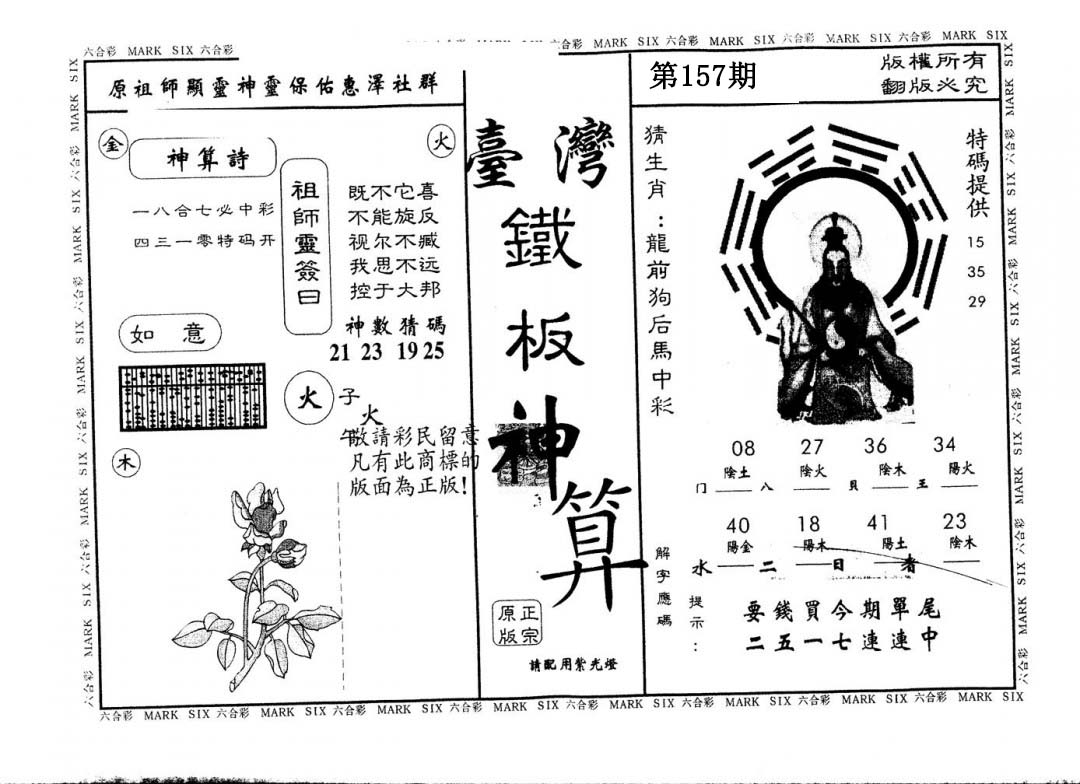 六合彩 MARK SIX 六合彩
六合彩 MARK SIX 六合彩 MARK SIX 六合彩 MARK SIX 六合彩 MARK SIX
原祖師顯靈神靈保佑惠澤社群
金
火
神算詩
一八合七必中彩
四三一零特码开
祖師靈簽曰
既不它喜
不能旋反
视尔不臧
我思不远
控于大邦
神數猜碼
21 23 19 25
如意
火
子
火
午
木
敬請彩民留意
凡有此商標的
版面為正版!
臺灣
鐵
板
神
算
正宗
原版
請配用紫光燈
第157期
版權所有
翻版必究
猜生肖:龍前狗后馬中彩
特碼提供
15
35
29
08 27 36 34
陰土 陰火 陰木 陽火
门 八 貝 王
40 18 41 23
陽金 陽木 陽土 陰木
水 二 日 者
解字應碼
提示:
要錢買今期單尾
二五一七連連中
六合彩 MARK SIX 六合彩 MARK SIX 六合彩 MARK SIX 六合彩 MARK SIX 六合彩 MARK SIX 六合彩 MARK SIX 六合彩 MARK SIX 六合彩 MARK SIX